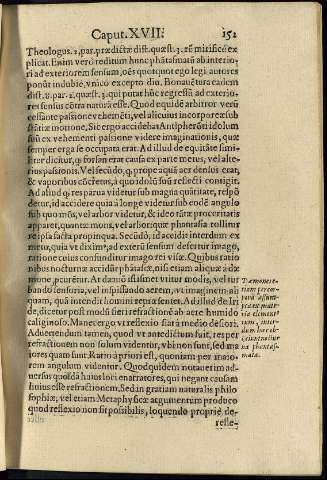 Caput. XVII. 152
Theologus. 2. par. prædictæ dist. quæst. 3. rẽ mirificẽ ex
plicat. Enim verò reditum hunc phãtasmatũ ab interio-
ri ad exteriorem sensum, oẽs quotquot ego legi autores
ponũt indubiè, vnico excepto diuo Bonauẽtura eadem
dist. 8. par. 2. quæst. 3. qui putat hũc regressũ ad exterio-
res sensus cõtra naturã esse. Quod equidẽ arbitror verũ
cessante passione vehemẽti, vel alicuius incorporeæ sub
stãtiæ motione. Sic ergo accidebat Antipherõti idolum
suũ ex vehementi passione videre imaginationis, quæ
semper erga se occupata erat. Ad illud de equitãte simi-
liter dicitur, q̃ forsan erat causa ex parte metus, vel alte-
rius passionis. Vel secũdo, q̃ prope aquã aer densius erat,
& vaporibus cõcretus, à quo idolũ suũ reflecti cõtigit.
Ad aliud q̃ res parua videtur sub magna quãtitate, respõ
detur, id accidere quia à longe videtur sub eodẽ angulo
sub quo mõs, vel arbor videtur, & ideo tãtæ proceritatis
apparet, quantæ mons, vel arbor: quæ phantasia tollitur
re ipsa facta propinqua. Secũdo, id accidit interdum ex
metu, quia vt diximus, ad exterũ sensum defertur imago,
ratione cuius confunditur imago rei visæ. Quibus ratio
nibus nocturnæ accidũt phãtasiæ, nisi etiam aliquæ à dæ
mone, pcurẽtur. At dæmõ istis met vtitur modis, vel tur
bando sensoria, vel inspissando aerem, vt imaginem ali
quam, quã intendit homini repræsentet. Ad illud de Iri
de, dicetur post modũ fieri reflectionẽ ab aere humido
caliginoso. Manet ergo vt reflexio fiat à medio desiori.
Aduertendum tamen, quod vt antedictum fuit, res per
refractionem non solum videntur, vbi non sunt, sed ma
iores quam sunt. Ratio à priori est, quoniam per maio-
rem angulum videntur. Quod quidem notauerim ad-
uersus quosdã huius loci enarratores, qui negant causam
huius esse refractionem. Sed in gratiam naturalis philo
sophiæ, vel etiam Metaphysicæ argumentum produco
quod reflexio non sit possibilis, loquendo propriè de-
refle-